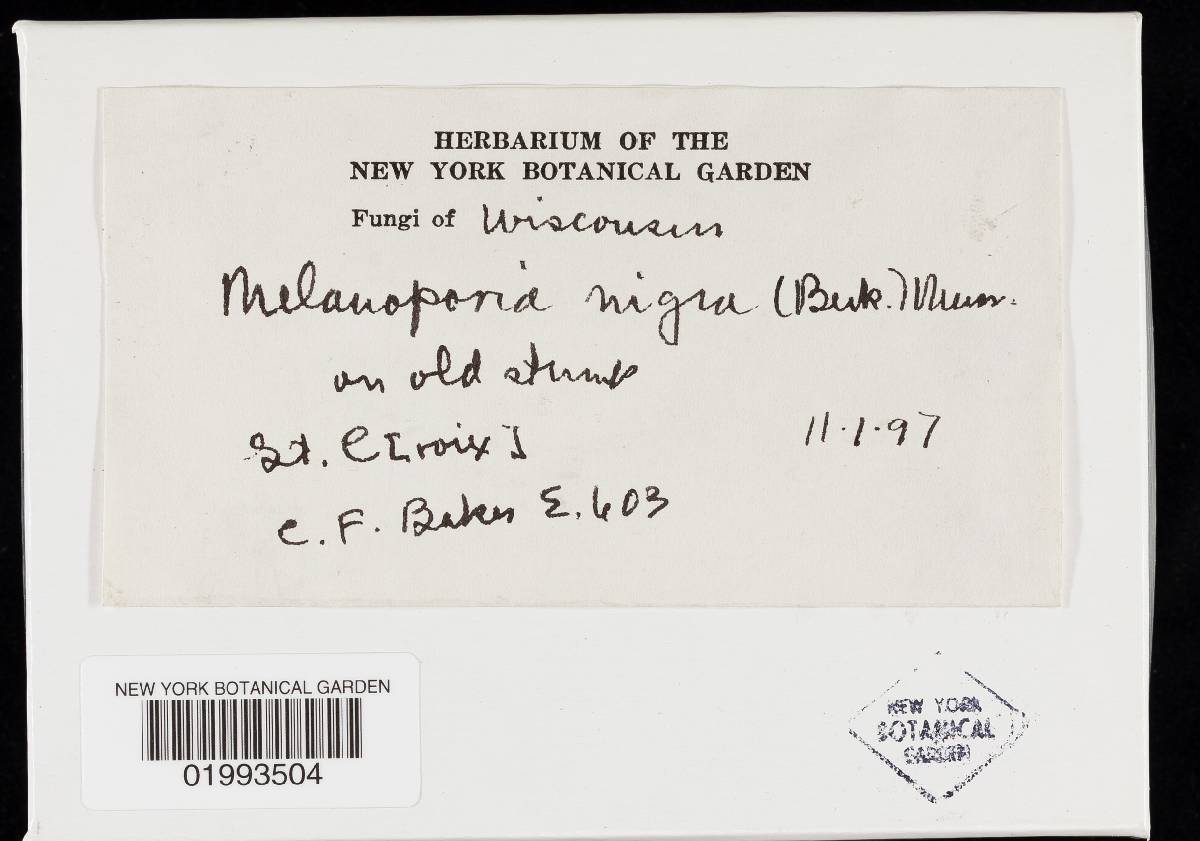 HERBARIUM OF THE
NEW YORK BOTANICAL GARDEN
Fungi of Wisconsin
Melanoporia nigra (Berk.) Murr.
on old stump
St. C[roix]
11·1·97
C. F. Baker E. 603
NEW YORK BOTANICAL GARDEN
01993504
NEW YORK
BOTANICAL
GARDEN